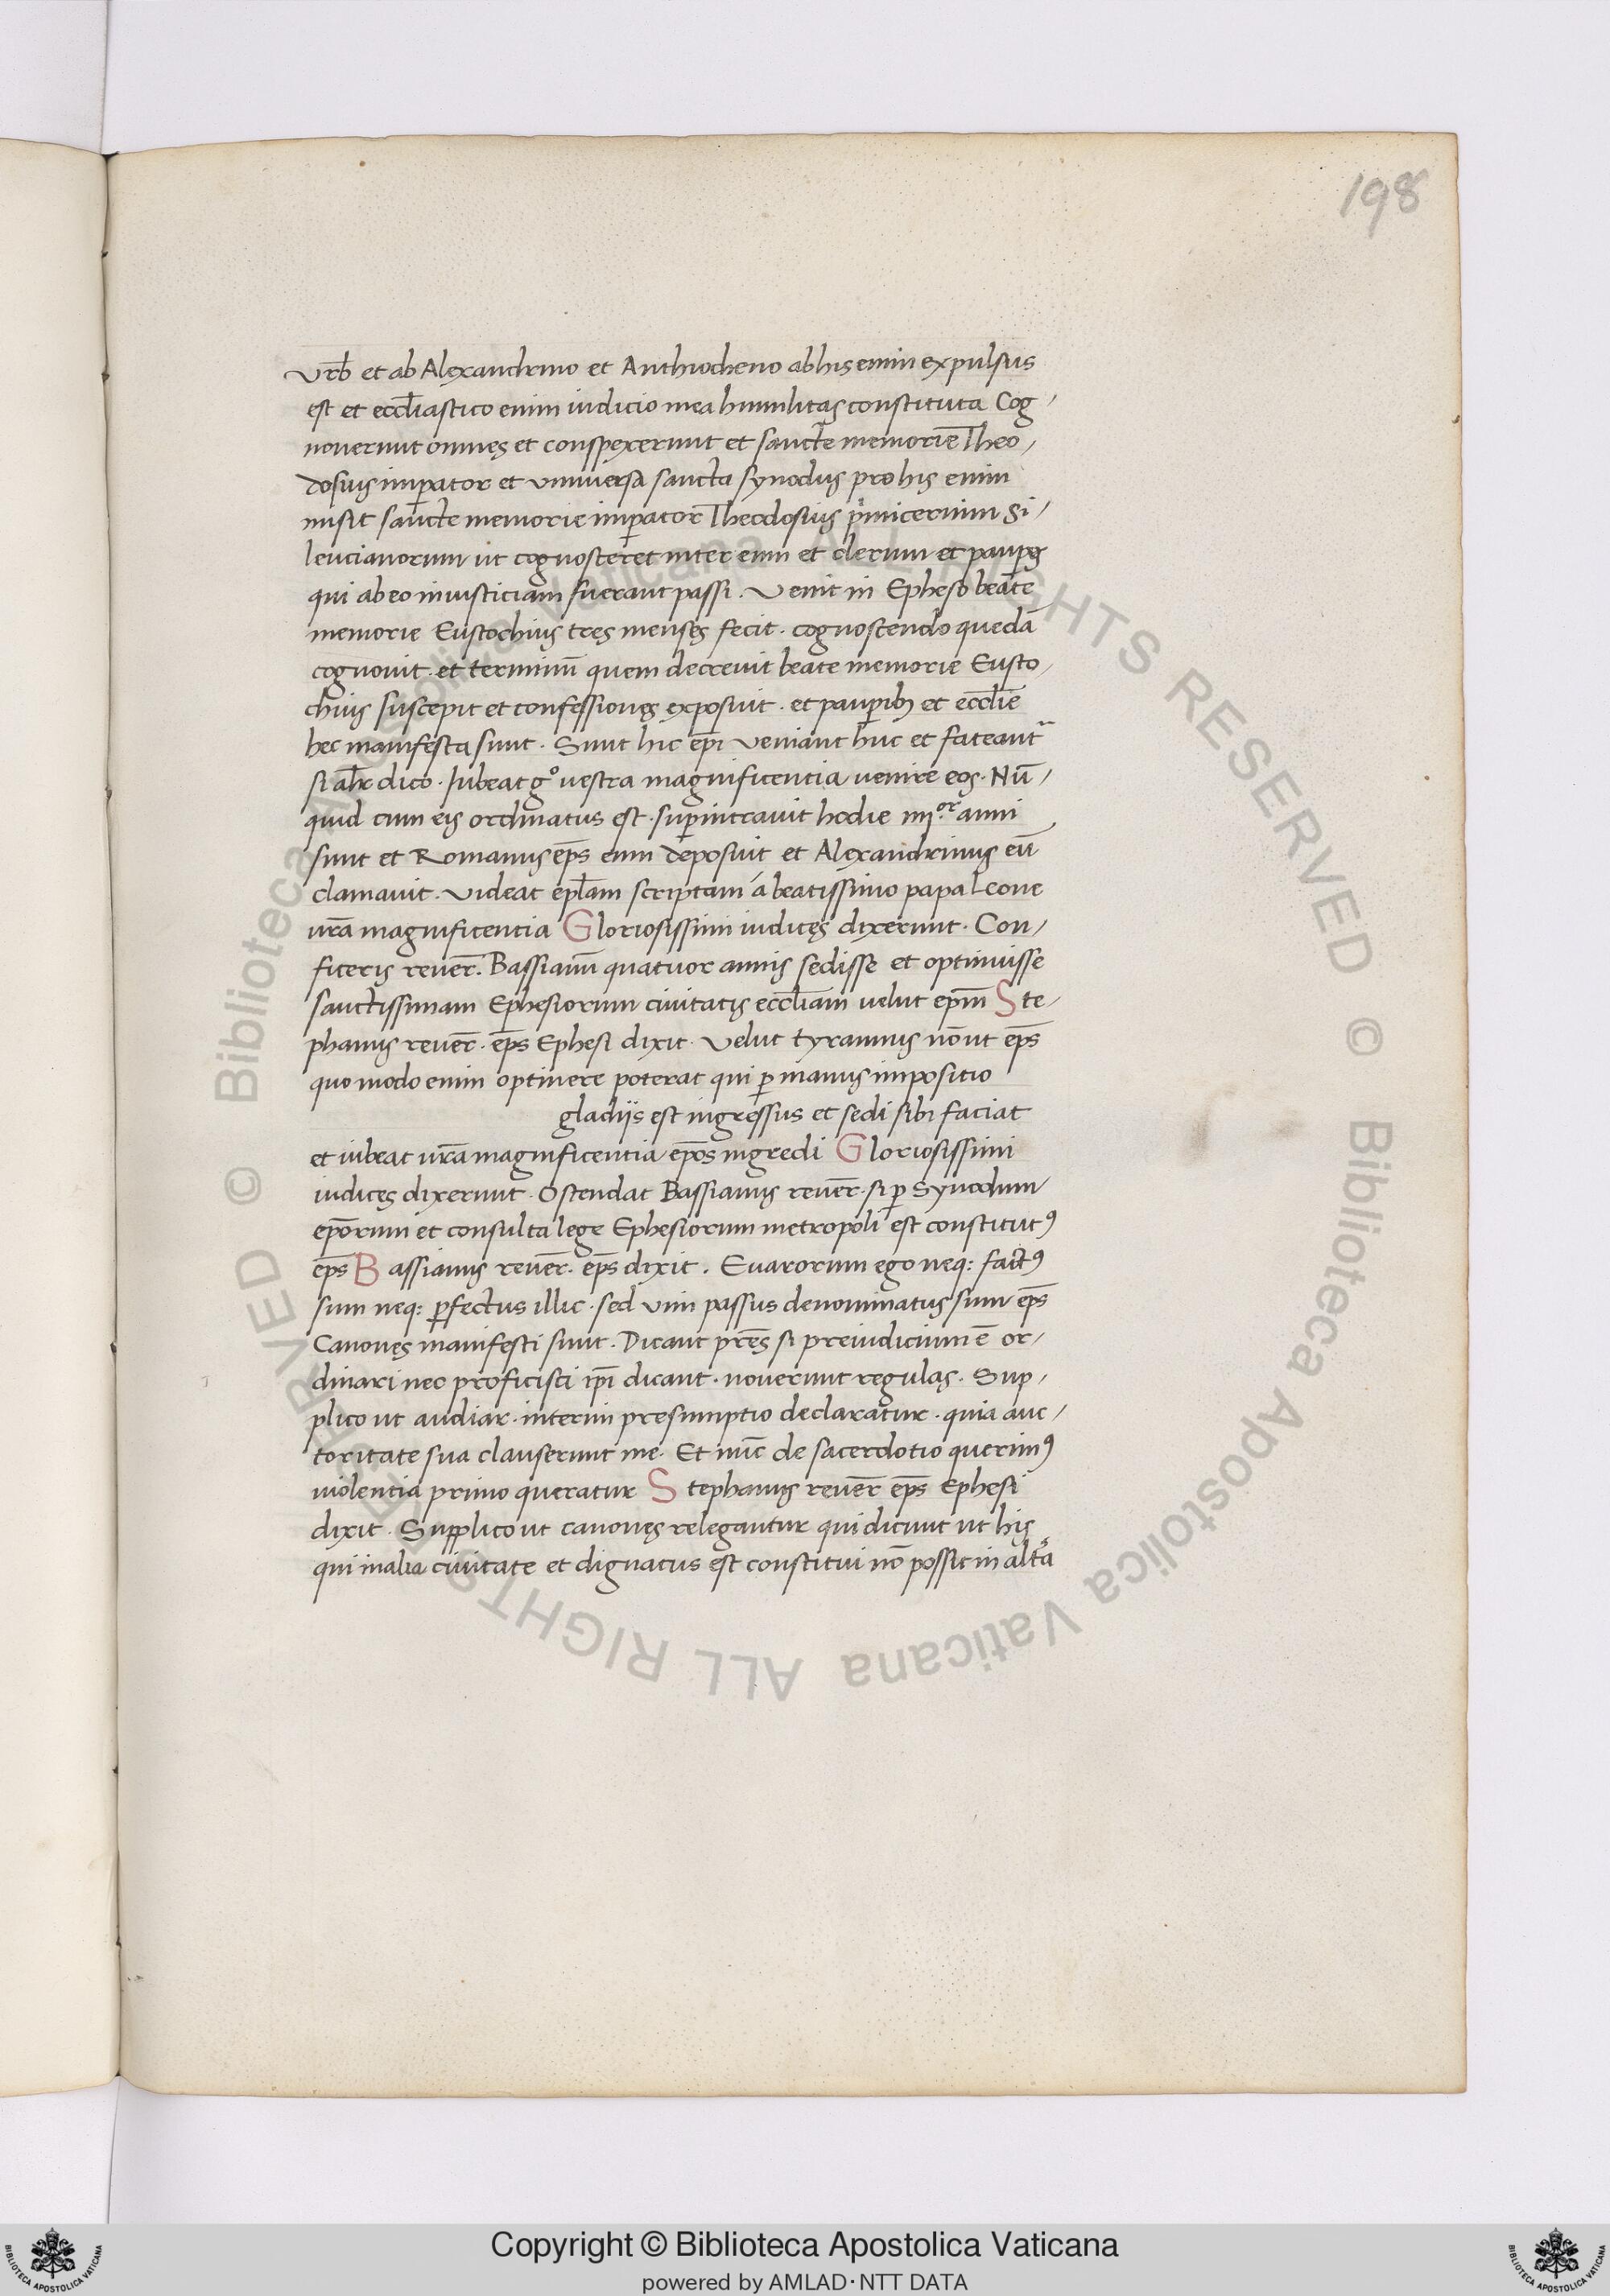 198
Vrb̄ et ab Alexandrino et Anthiocheno ab his enim expulsus
est et eccl̄iastico enim iudicio mea humilitas constituta Cog-
noverunt omnes et conspexerunt et sancte memorie Theo-
dosius imp̄ator et vniversa sancta synodus pro his enim
misit sancte memorie imp̄ator Theodosius p̄micerium Si-
leucianorum ut cognosceret inter eum et clerum et paup̄es
qui ab eo iniusticiam fuerant passi. Venit in Epheso beate
memorie Eustochius tres menses fecit. cognoscendo quedā
cognovit. et terminū quem decrevit beate memorie Eusto-
chius suscepit et confessiones exposuit. et paup̄ibȝ et eccl̄ie
hec manifesta sunt. Sunt hic ep̄i veniant huc et fateant̄
si al̄r dico. Iubeat gͦ vestra magnificentia venire eos. Nū-
quid cum eis ordinatus est. sup̄intravit hodie iiii.or anni
sunt et Romanus ep̄s eum deposuit et Alexandrinus eū
clamavit. Videat ep̄lam scriptam á beatissimo papa Leone
vr̄a magnificentia Gloriosissimi iudices dixerunt. Con-
fiteris reuer̄. Bassianū quatuor annis sedisse et optinuisse
sanctissimam Ephesiorum ciuitatis eccl̄iam velut ep̄m Ste-
phanus reuer̄. ep̄s Ephesi dixit. Velut tyrannus nō ut ep̄s
quo modo enim optinere poterat qui p̱ manus impositio
gladiis est ingressus et sedi sibi faciat
et iubeat vr̄a magnificentia ep̄os ingredi Gloriosissimi
iudices dixerunt. Ostendat Bassianus reuer̄. si p̱ Synodum
ep̄orum et consulta lege Ephesiorum metropoli est constitutꝰ
ep̄s Bassianus reuer̄. ep̄s dixit. Evarorum ego neq: factꝰ
sum neq: p̱fectus illic. sed vim passus denominatus sum ep̄s
Canones manifesti sunt. Dicant pr̄es si preiudicium ē or-
dinari nec proficisci ip̄i dicant. noverunt regulas. Sup-
plico ut audiar. interim presumptio declaratur. quia auc-
toritate sua clauserunt me. Et nūc de sacerdotio querimꝰ
violentia primo queratur Stephanus reuer̄ ep̄s Ephesi
dixit. Supplico ut canones relegantur qui dicunt ut his
qui in alia ciuitate et dignatus est constitui nō possit in alt̄a
Copyright © Biblioteca Apostolica Vaticana
powered by AMLAD·NTT DATA